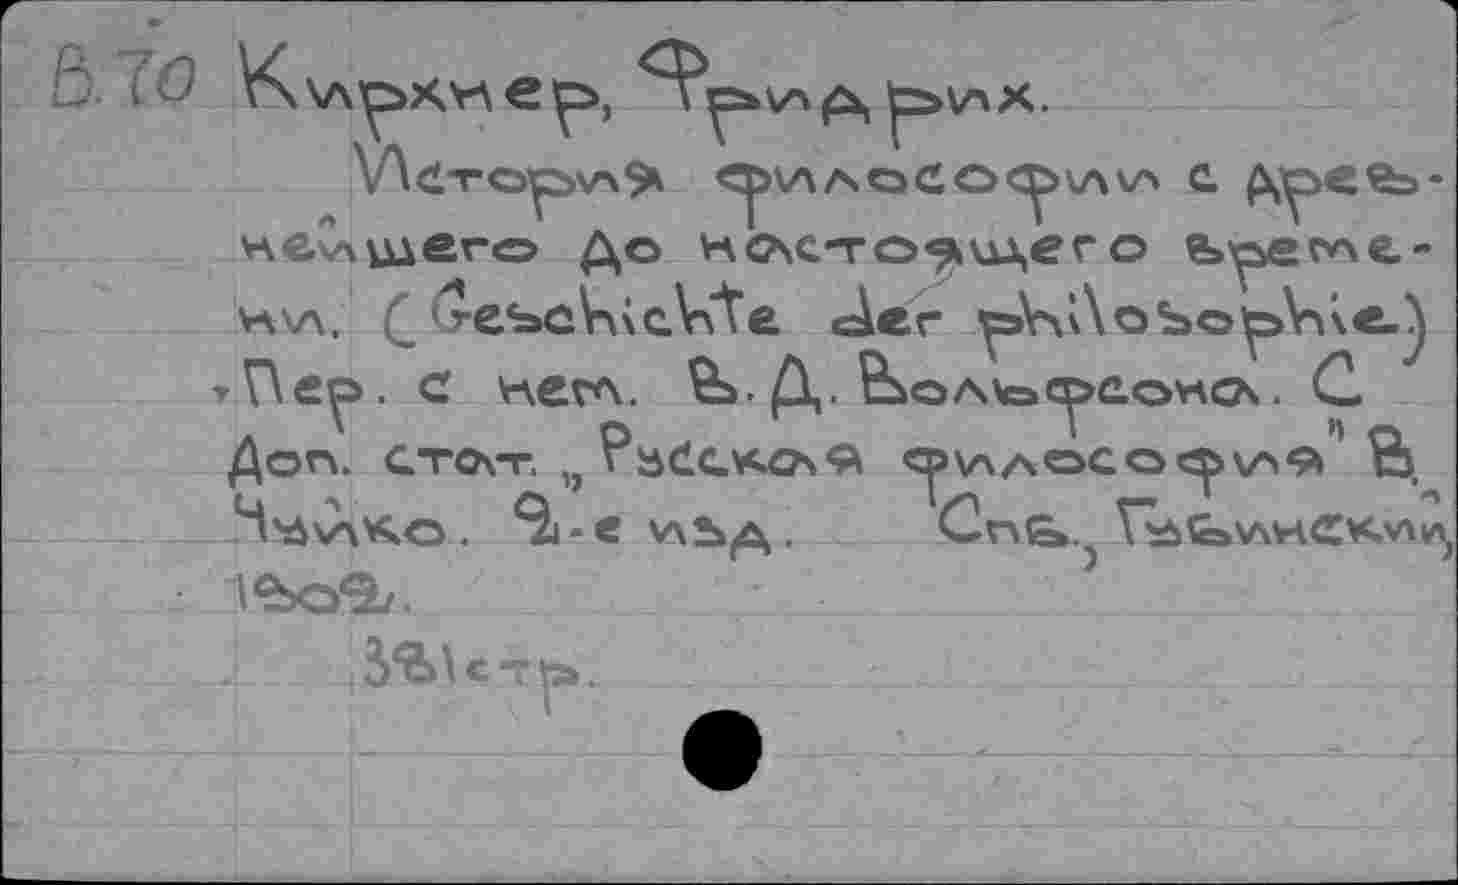 В.70 Кирхнер, Фридрих.
История философии с древ-
нейшего до настоящего време-
ни. (Geschichte der philosophie.)
Пер. с нем. В. Д. Вольфсона. С
Доп. стат. „Русская философия" В.
Чуйко. 2-е изд. Спб., Губинский,
1902.
381 стр.